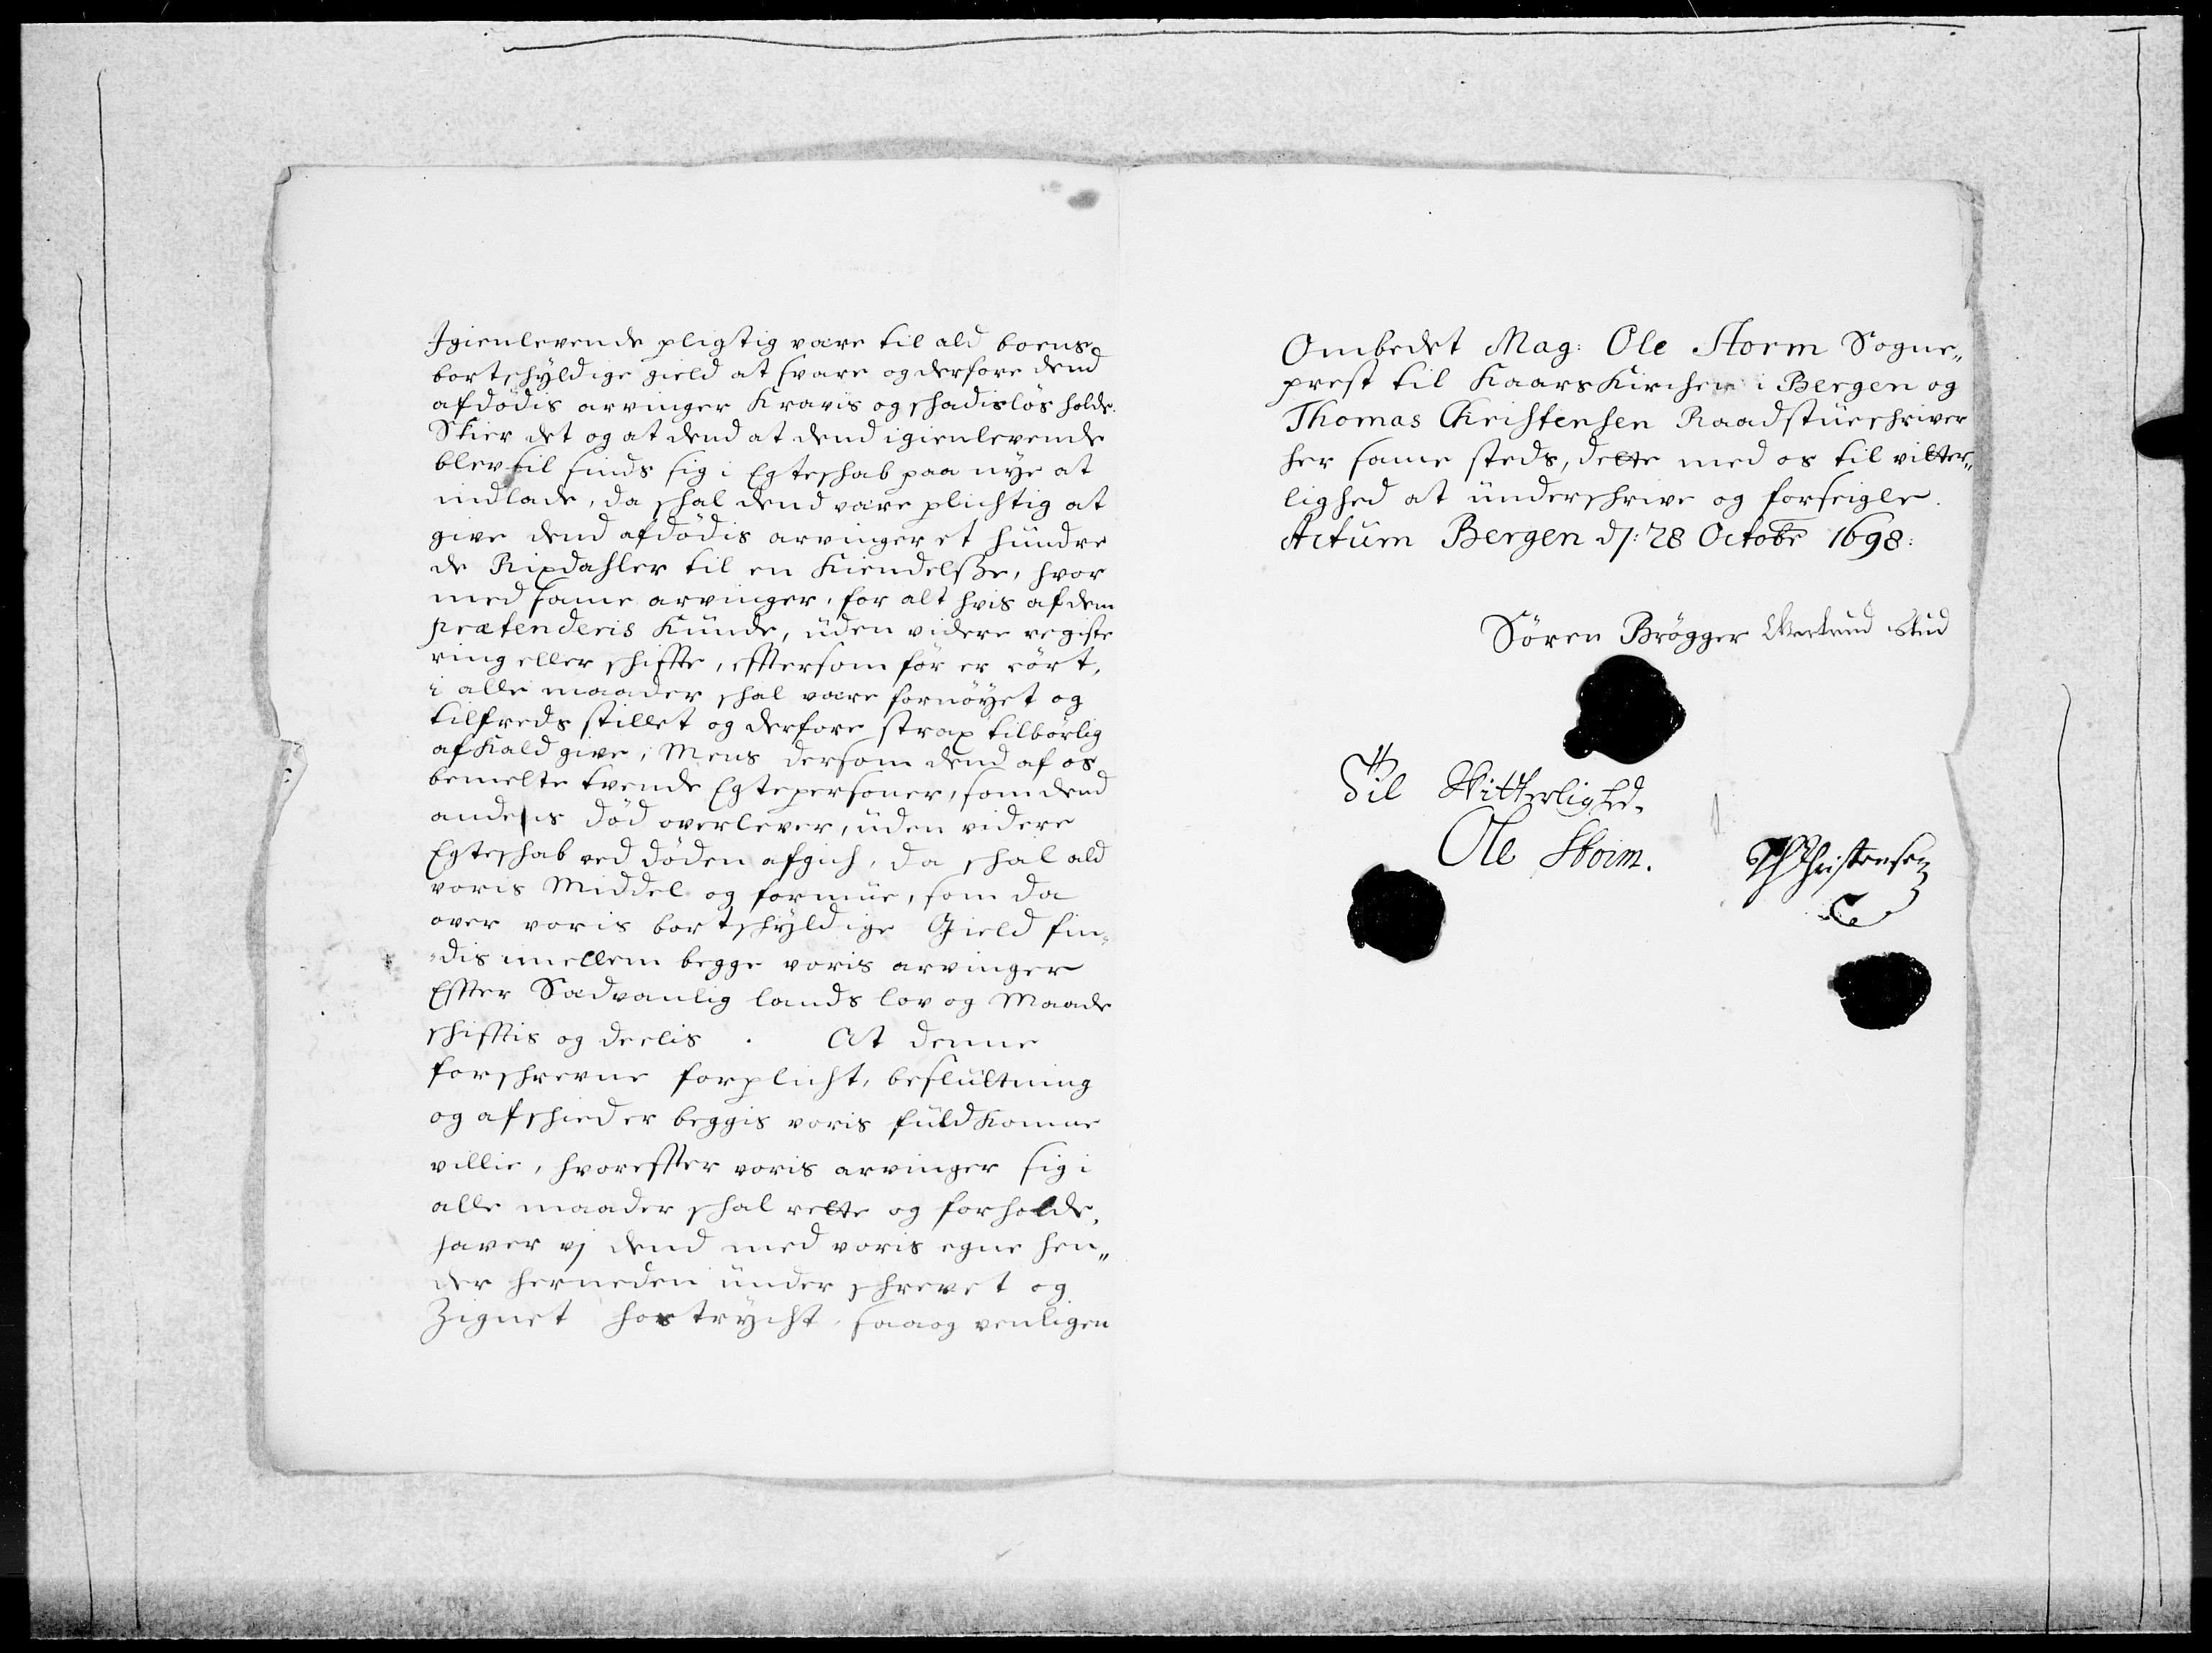 Igienlevende pligtig være til ald boens
bortschyldige gield at svare og derfore dend
afdödis arvinger Kravis og schadislös holde.
Skier det og at dend at dend igienlevende
blev til sinds sig i Egteschab paa nye at
indlade, da schal dend være plichtig at
give dend afdödis arvinger et hundre
de Rixdahler til en Kiendelsze, hvor
med same arvinger, for alt hvis af dem
prætenderis Kunde, uden videre registe
ring eller schiffte, efftersom för er rört,
i alle maader schal være fornöyet og
tilfreds stillet og derfore strax tilbörlig
afkald give, Mens dersom dend af os
bemelte tvende Egtepersoner, som dend
andens död overlever, uden videre
Egteschab ved döden afgich, da schal ald
voris Middel og formue, som da
over voris bortschyldige Gield fin„
„dis imellem begge voris arvinger
Effter Sædvanlig lands lov og Maade
schifftis og deelis . At denne
forschrevne forplicht, beslutning
og afschied er beggis voris fuldkomne
villie, hvoreffter voris arvinger sig i
alle maader schal rette og forholde,
haver vj dend med voris egne hen„
der herneden under schrevet og
Zignet hos trycht, saa og venligen
Ombedet Mag: Ole Storm Sogne„
prest til Kaars Kirchen i Bergen og
Thomas Christensen Raadstueschriver
her same steds, dette med os til vitter„
lighed at underschrive og forseigle.
Actum Bergen d: 28 Octobr 1698:
Sören Brögger
Til Vitterlighed.
Ole Storm.
Th Christensen